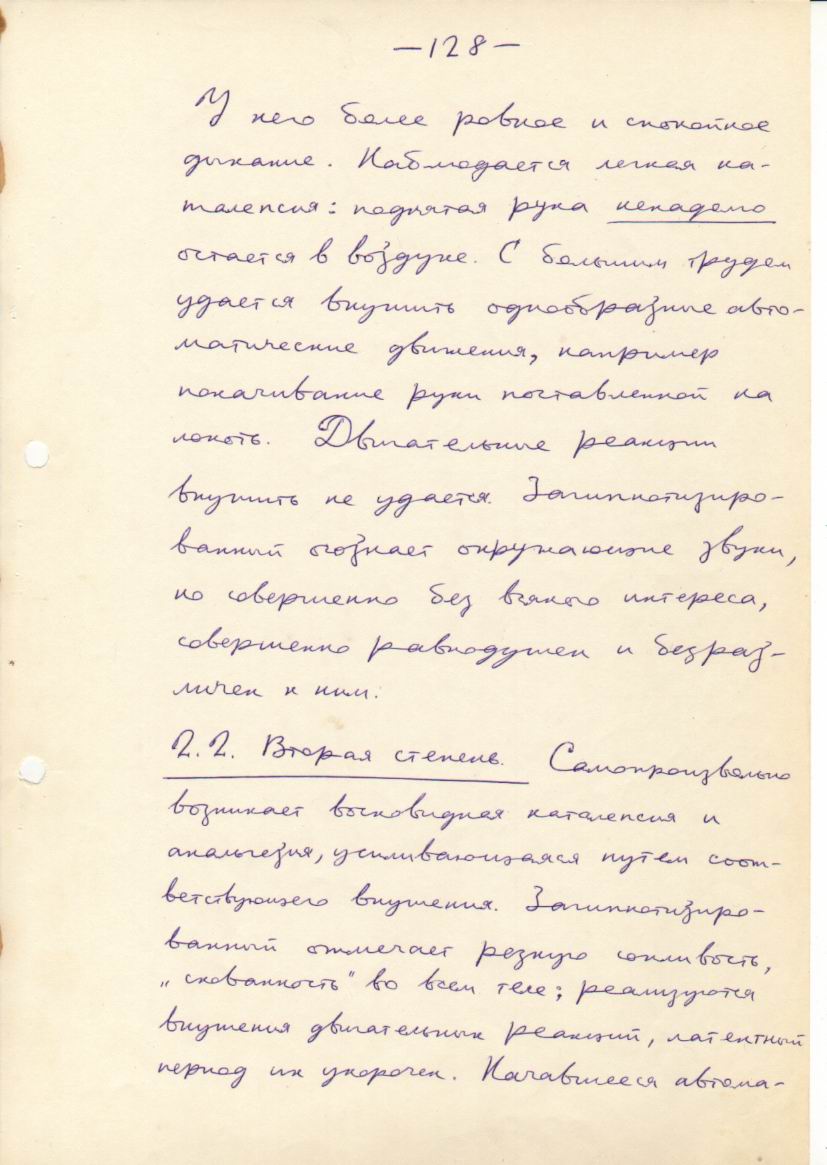 —128—
У него более ровное и спокойное
дыхание. Наблюдается легкая ка-
талепсия: поднятая рука ненадолго
остается в воздухе. С большим трудом
удается внушить однообразные авто-
матические движения, например
покачивание руки поставленной на
локоть. Двигательные реакции
внушить не удается. Загипнотизиро-
ванный осознает окружающие звуки,
но совершенно без всякого интереса,
совершенно равнодушен и безраз-
личен к ним.
2.2. Вторая степень. Самопроизвольно
возникает восковидная каталепсия и
анальгезия, усиливающаяся путем соот-
ветствующего внушения. Загипнотизиро-
ванный отмечает резкую сонливость,
„скованность" во всем теле; реализуются
внушения двигательных реакций, латентный
период их укорочен. Начавшееся автома-